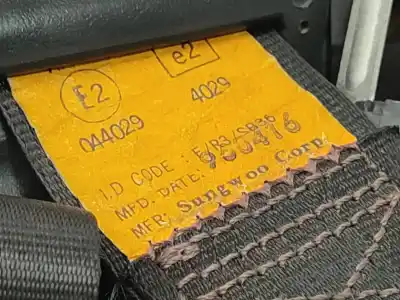 E2 e2
044029 4029
I.D CODE : E/R3/SB36
MFD. DATE: 960416
MFR: Sungwoo Corp.